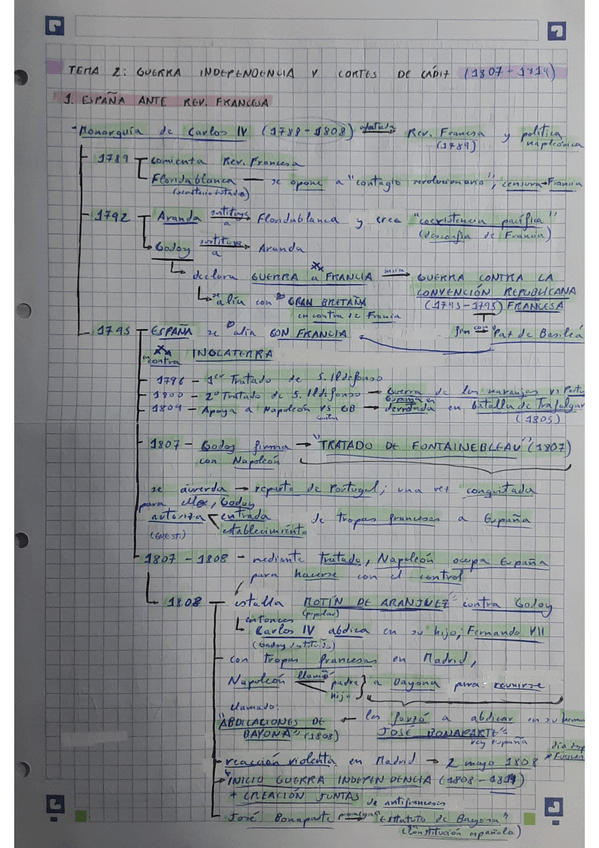 TEMA 2: GUERRA INDEPENDENCIA Y CORTES DE CÁDIZ (1807-1914)
1. ESPAÑA ANTE REV. FRANCESA
- Monarquía de Carlos IV (1788-1808) → Rev. Francesa y política
(1789) napoleónica
- 1789 comienza Rev. Francesa
Floridablanca — se opone a "contagio revolucionario", censura → Francia
(secretario estado)
- 1792 Aranda sustituye a → Floridablanca y crea "coexistencia pacífica"
(desconfía de Francia)
Godoy sustituye a → Aranda
declara GUERRA a FRANCIA → GUERRA CONTRA LA
CONVENCIÓN REPUBLICANA
se alía con GRAN BRETAÑA (1793-1795) FRANCESA
en contra de Francia
fin con Paz de Basilea
- 1795 ESPAÑA se alía CON FRANCIA
contra INGLATERRA
- 1796 - 1er Tratado de S. Ildefonso
- 1800 - 2º Tratado de S. Ildefonso → Guerra de las naranjas vs
- 1804 - Apoya a Napoleón vs GB → derrotada en batalla de Trafalgar
(1805)
- 1807 - Godoy firma → "TRATADO DE FONTAINEBLEAU" (1807)
con Napoleón
se acuerda → reparto de Portugal; una vez conquistada
para ello, Godoy
autoriza entrada de tropas francesas a España
establecimiento
- 1807 - 1808 - mediante tratado, Napoleón ocupa España
para hacerse con el control
1808 estalla MOTÍN DE ARANJUEZ contra Godoy
(popular)
entonces Carlos IV abdica en su hijo, Fernando VII
- con tropas francesas en Madrid,
Napoleón llamó padre hijo a Bayona para reunirse
llamado:
"ABDICACIONES DE BAYONA" (1808) ← les forzó a abdicar en su
JOSÉ BONAPARTE
rey España
- reacción violenta en Madrid → 2 mayo 1808
→ INICIO GUERRA INDEPENDENCIA (1808-1814)
+ CREACIÓN JUNTAS de antifranceses
- José Bonaparte → "Estatuto de Bayona"
(Constitución española)